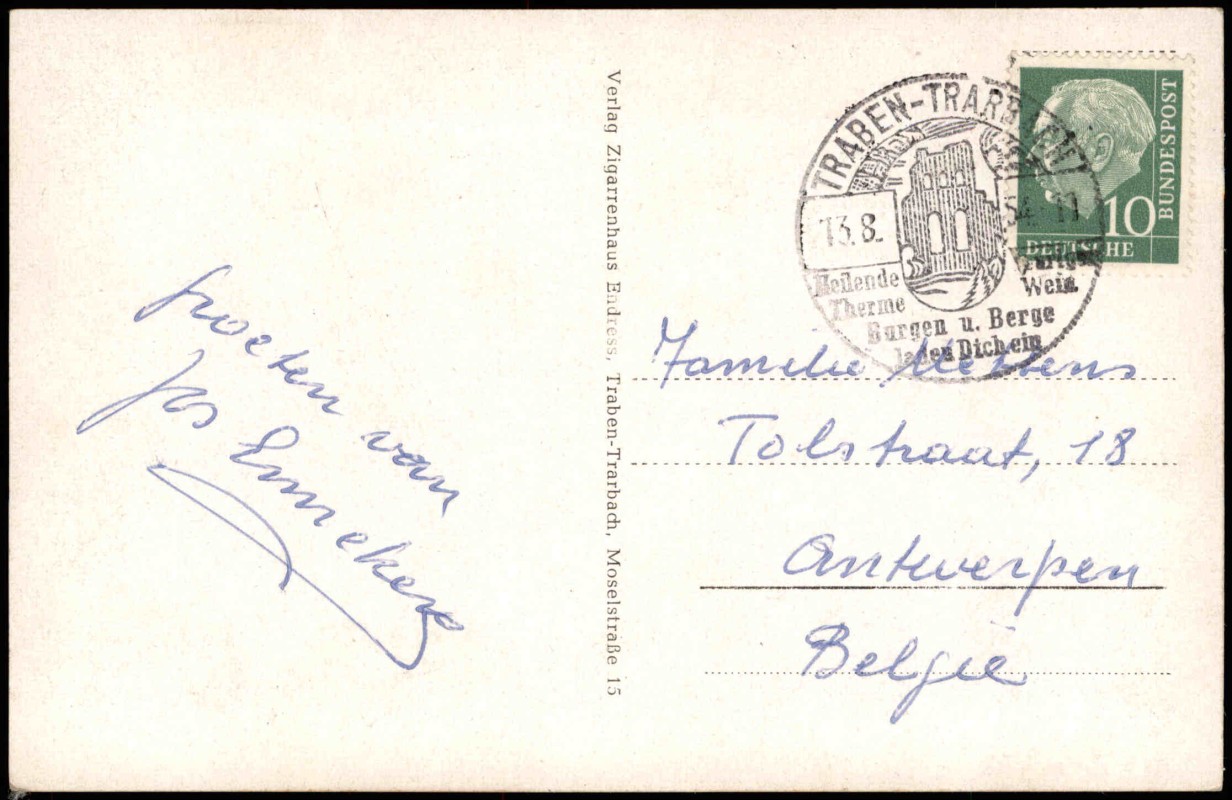 groeten van
Jos Emmekens
Verlag Zigarrenhaus Endress, Traben-Trarbach, Moselstraße 15
TRABEN-TRARBACH
13.8. 54 11
Heilende
Therme
Wein
Burgen u. Berge
laden Dich ein
BUNDESPOST
10
DEUTSCHE
Familie Mertens
Tolstraat, 18
Antwerpen
België